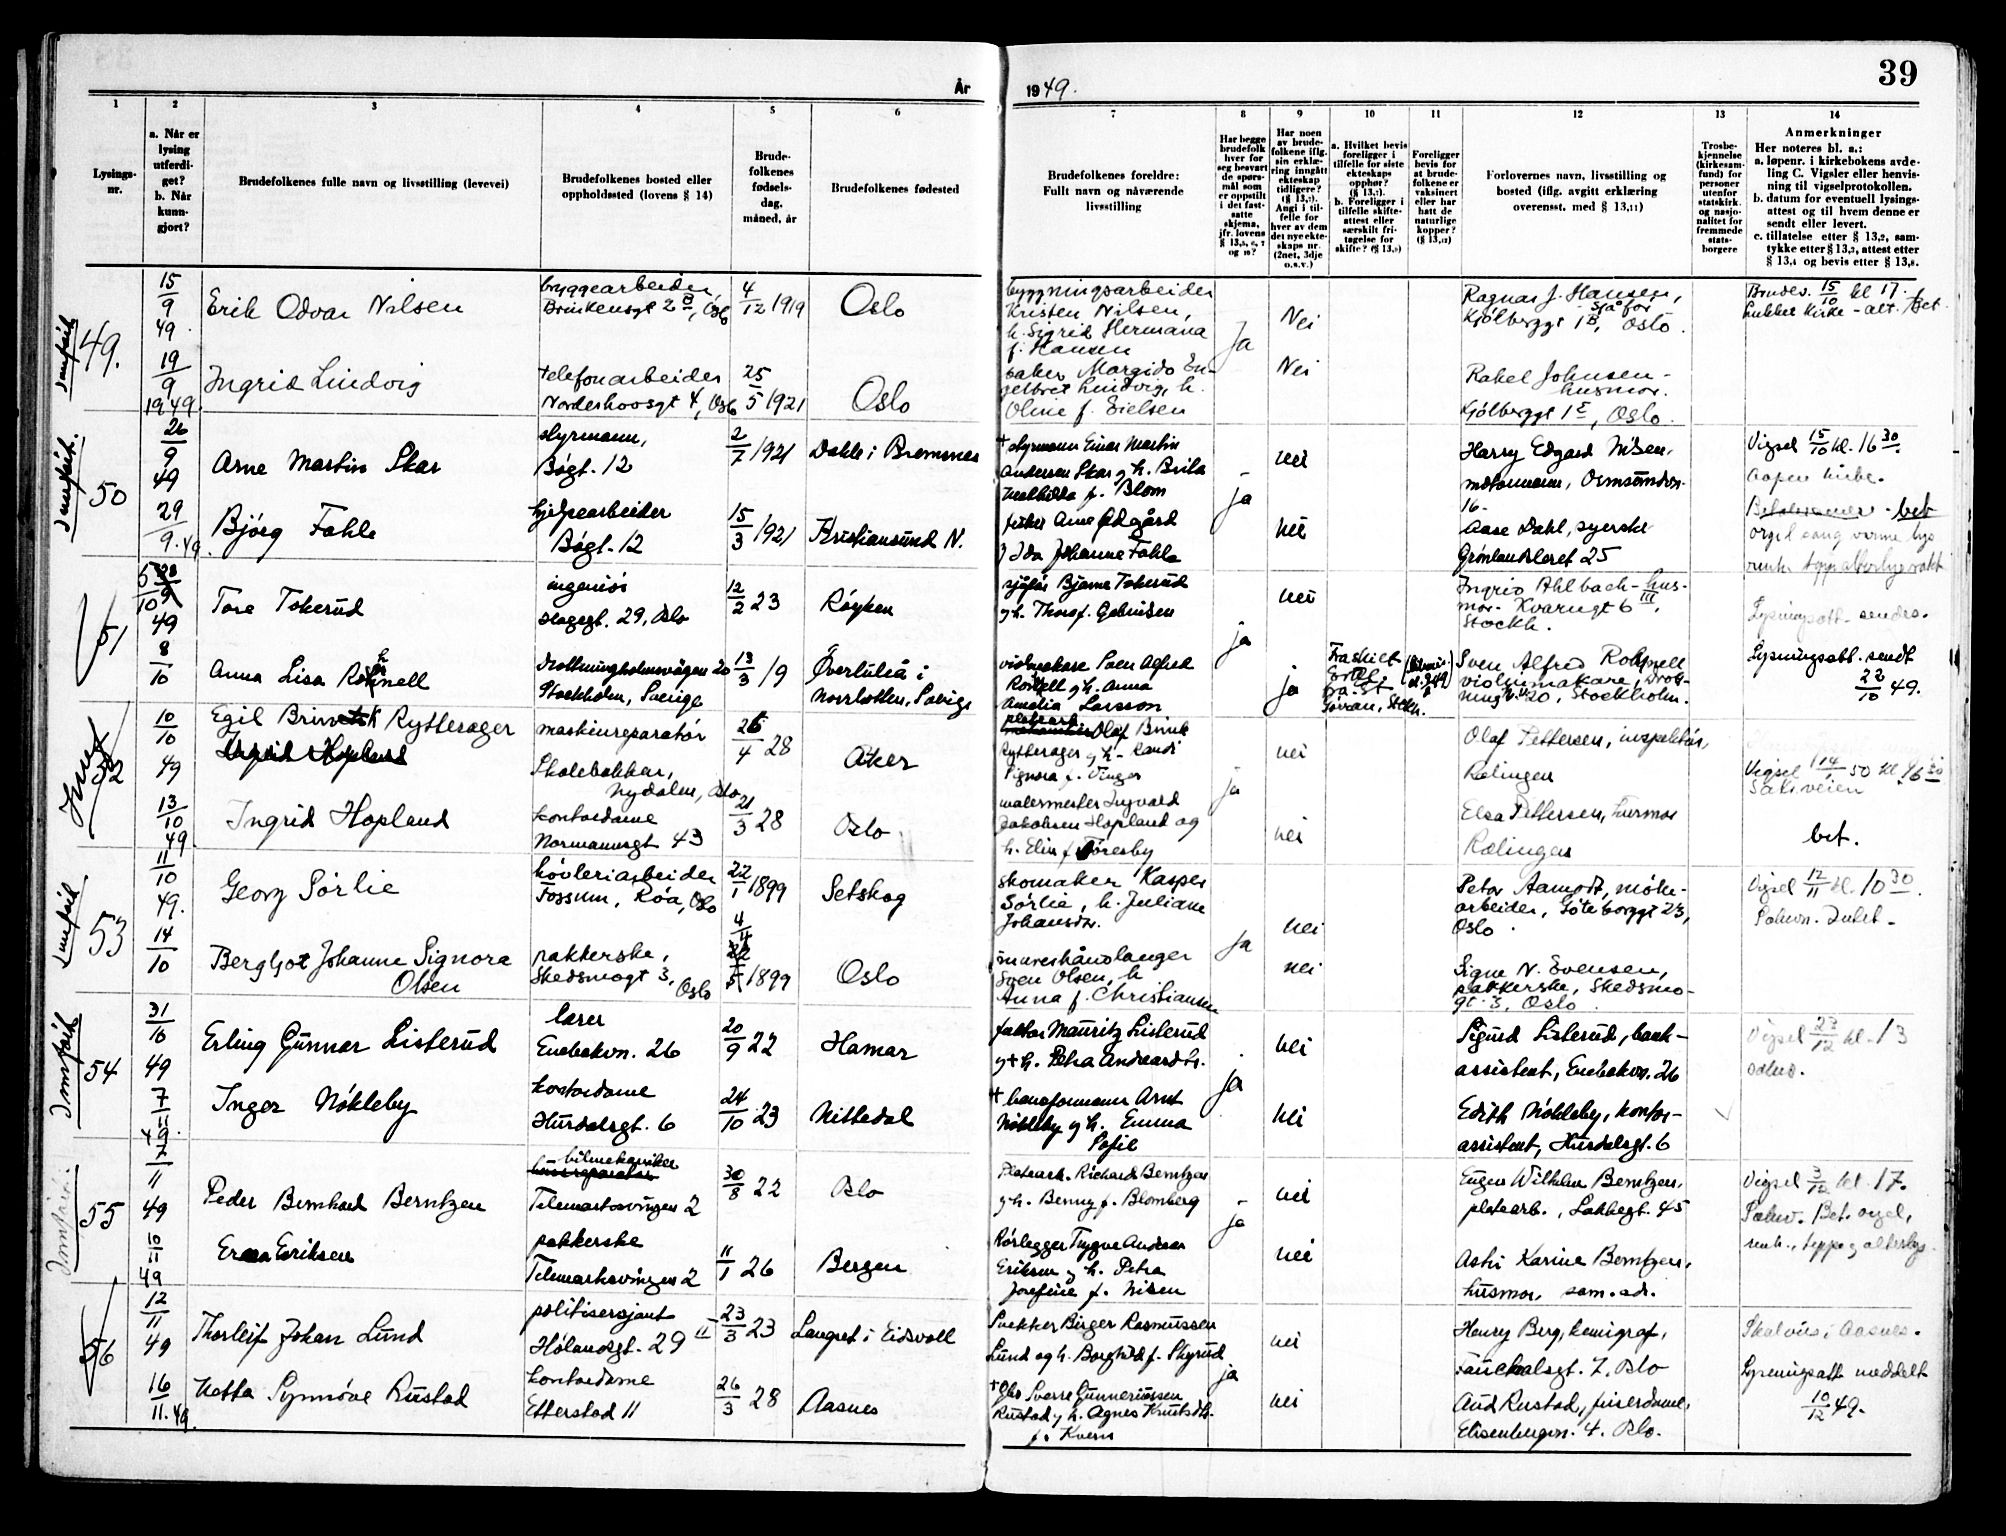 39
År
1949.
1 2 3 4 5 6 7 8 9 10 11 12 13 14
Lysings-
nr.
a. Når er
lysing
utferdi-
get?
b. Når
kunn-
gjort?
Brudefolkenes fulle navn og livsstilling (levevei)
Brudefolkenes bosted eller
oppholdssted (lovens § 14)
Brude-
folkenes
fødsels-
dag,
måned, år
Brudefolkenes fødested
Brudefolkenes foreldre:
Fullt navn og nåværende
livsstilling
Har begge
brudefolk
hver for
seg besvart
de spørs-
mål som
er oppstilt
i det fast-
satte
skjema,
jfr. lovens
§ 13,5, 6, 7
og 10?
Har noen
av brude-
folkene iflg.
sin erklæ-
ring inngått
ekteskap
tidligere?
(§ 13,7).
Angi i til-
felle for
hver av dem
det nye ekte-
skaps nr.
(2net, 3dje
o.s.v.)
a. Hvilket bevis
foreligger i
tilfelle for siste
ekteskaps
opphør?
(§ 13,7).
b. Foreligger i
tilfelle skifte-
attest eller
særskilt fri-
tagelse for
skifte? (§ 13,9)
Foreligger
bevis for
at brude-
folkene er
vaksinert
eller har
hatt de
naturlige
kopper?
(§ 13,12)
Forlovernes navn, livsstilling og
bosted (iflg. avgitt erklæring
overensst. med § 13,11)
Trosbe-
kjennelse
(kirkesam-
fund) for
personer
utenfor
statskirk.
og nasjo-
nalitet for
fremmede
stats-
borgere
Anmerkninger
Her noteres bl. a.:
a. løpenr. i kirkebokens avde-
ling C. Vigsler eller henvis-
ning til vigselprotokollen.
b. datum for eventuell lysings-
attest og til hvem denne er
sendt eller levert.
c. tillatelse etter § 13,2, sam-
tykke etter § 13,3, attest etter
§ 13,4 og bevis etter § 13,8.
49.
15/9 49.
Erik Odvar Nilsen
bryggearbeider,
Brinkensgt 2 B, Oslo
4/12 1919
Oslo
bygningsarbeider
Kristen Nilsen,
h. Sigrid Hermana
f. Hansen
Ja
Nei
Ragnar J. Hansen,
Sjåfør
Kjølberggt 1B, Oslo.
Brudev. 15/10 kl 17.
Lukket Kirke - alt. / bet
19/9 1949.
Ingrid Lindvig
telefonarbeider
Norderhovsgt 4, Oslo
25/5 1921
Oslo
baker Margido En-
gelbret Lindvig, h.
Oline f. Eielsen
Nei
Rakel Johnsen -
husmor.
Kjølberggt 1 E, Oslo.
50
26/9 49
Arne Martin Skar
styrmann,
Bøgt. 12
2/7 1921
Dahle i Bremsnes
+ styrmann Einar Martin
Andersen Skar og h. Brita
Mathilda f. Blom
ja
nei
Harry Edgard Nilsen,
Ormsundvn.
16.
Vigsel 15/10 kl. 16 30.
29/9.49.
Bjørg Fahle
hjelpearbeider
Bøgt. 12
15/3 1921
Kristiansund N.
fisker Arne Ødgård
Ida Johanne Fahle
nei
Aase Dahl, syerske
Grønlandsleret 25
bet
orgel sang varme lys
51
5/10 49
Tore Tokerud
ingeniør
Hagegt. 29, Oslo
12/2 23
Røyken
sjåfør Bjarne Tokerud
og h. Thora f. Gebriksen
ja
nei
Ingrid Ahlbach - hus-
mor. Kvarngt 6 III,
Stockh.
Lysningsatt. sendes.
8/10
Anna Lisa Rohnell
Drottningholmsvägen 20
Stockholm, Sverige
13/3 19
Överluleå i
Norrbotten, Sverige
violmakare Sven Alfred
Rohnell og h. Anna
Amalia Larsson
ja
Fraskilt
Sven Alfred Rohnell
violinmakare, Drott-
ningh.v. 20, Stockholm.
Lysningsatt. sendt
22/10 49.
52
10/10 49
Egil Brinck Rytterager
Ingrid Hopland
maskinreparatør
Skolebakken,
Nydalen, Oslo
26/4 28
Aker
platearb.
Olaf Brink
Rytterager og h. Randi
Signora f. Vinger
ja
nei
Olaf Pettersen, inspektør,
Rælingen
Vigsel 14/1 50 kl. 16 30
13/10 49
Ingrid Hopland
kontordame
Normannsgt 43
21/3 28
Oslo
malermester Ingvald
Jakobsen Hopland og
h. Elin f. Toresby
nei
Elsa Pettersen, husmor
Rælingen
bet.
53
11/10 49.
Georg Sørlie
høvleriarbeider
Fossum, Røa, Oslo
22/1 1899
Setskog
skomaker Kasper
Sørlie, h. Juliane
Johansdtr.
ja
nei
Peter Aamodt, møbe-
arbeider, Göteborggt 23,
Oslo.
Vigsel 12/11 kl. 10 30.
14/10
Bergljot Johanne Signora
Olsen
pakkerske,
Skedsmogt 3, Oslo
4/4 1899
Oslo
murerhåndlanger
Sven Olsen, h
Anna f. Christiansen
nei
Signe N. Evensen,
pakkerske, Skedsmo-
gt. 3, Oslo.
54
31/10 49
Erling Gunnar Listerud
lærer
Enebakvn. 26
20/9 22
Hamar
faktor Mauritz Listerud
og + h. Petra Andreasdtr.
ja
nei
Sigurd Listerud, bank-
assistent, Enebakvn. 26
Vigsel 27/12 kl. 13
7/11 49.
Inger Nøkleby
kontordame
Hurdalsgt. 6
24/10 23
Nittedal
+ baneformann Arnt
Nøkleby og h. Emma
Sofie
nei
Edith Nøkleby, kontor-
assistent, Hurdalsgt. 6
55
7/11 49
Peder Bernhard Berntzen
bilmekaniker
Telemarksvingen 2
30/8 22
Oslo
Platearb. Richard Berntzen
og h. Benny f. Blomberg
ja
nei
Eugen Wilhelm Berntzen,
platearb., Lakkegt. 45
Vigsel 3/12 kl. 17.
10/11 49
Erna Eriksen
pakkerske
Telemarksvingen 2
11/1 26
Bergen
Rørlegger Trygve Andreas
Eriksen og h. Petra
Josefine f. Nilsen
nei
Astri Karine Berntzen,
husmor, sam. adr.
56
12/11 49
Thorleif Johan Lund
politisersjant
Hølandsgt. 29 II
23/3 23
Langset i Eidsvoll
Snekker Birger Rasmussen
Lund og h. Borghild f. Skyrud
ja
nei
Henry Berg, kemigraf,
Fauchalsgt. 7, Oslo
Skal vies i Aasnes.
Lysningsatt meddelt
10/12 49.
16/11.49.
Netta Synnøve Rustad
kontordame
Etterstad 11
26/3 28
Aasnes
+ Gbr. Sverre Gunneriussen
Rustad og h. Agnes Knutsdtr.
f. Kvern
nei
Aud Rustad, friserdame,
Eilisenbergvn. 4. Oslo.